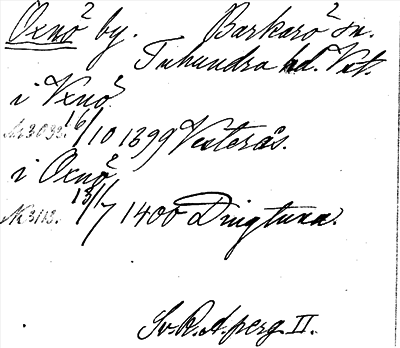 Oxnö by. Barkarö sn.
Tuhundra hd. Vst.
i Vxnö
Nr 3033. 16/10 1399 Vesterås.
i Oxnö
N. 3113. 13/7 1400 Dingtuna.
Sv. R. A. perg. II.